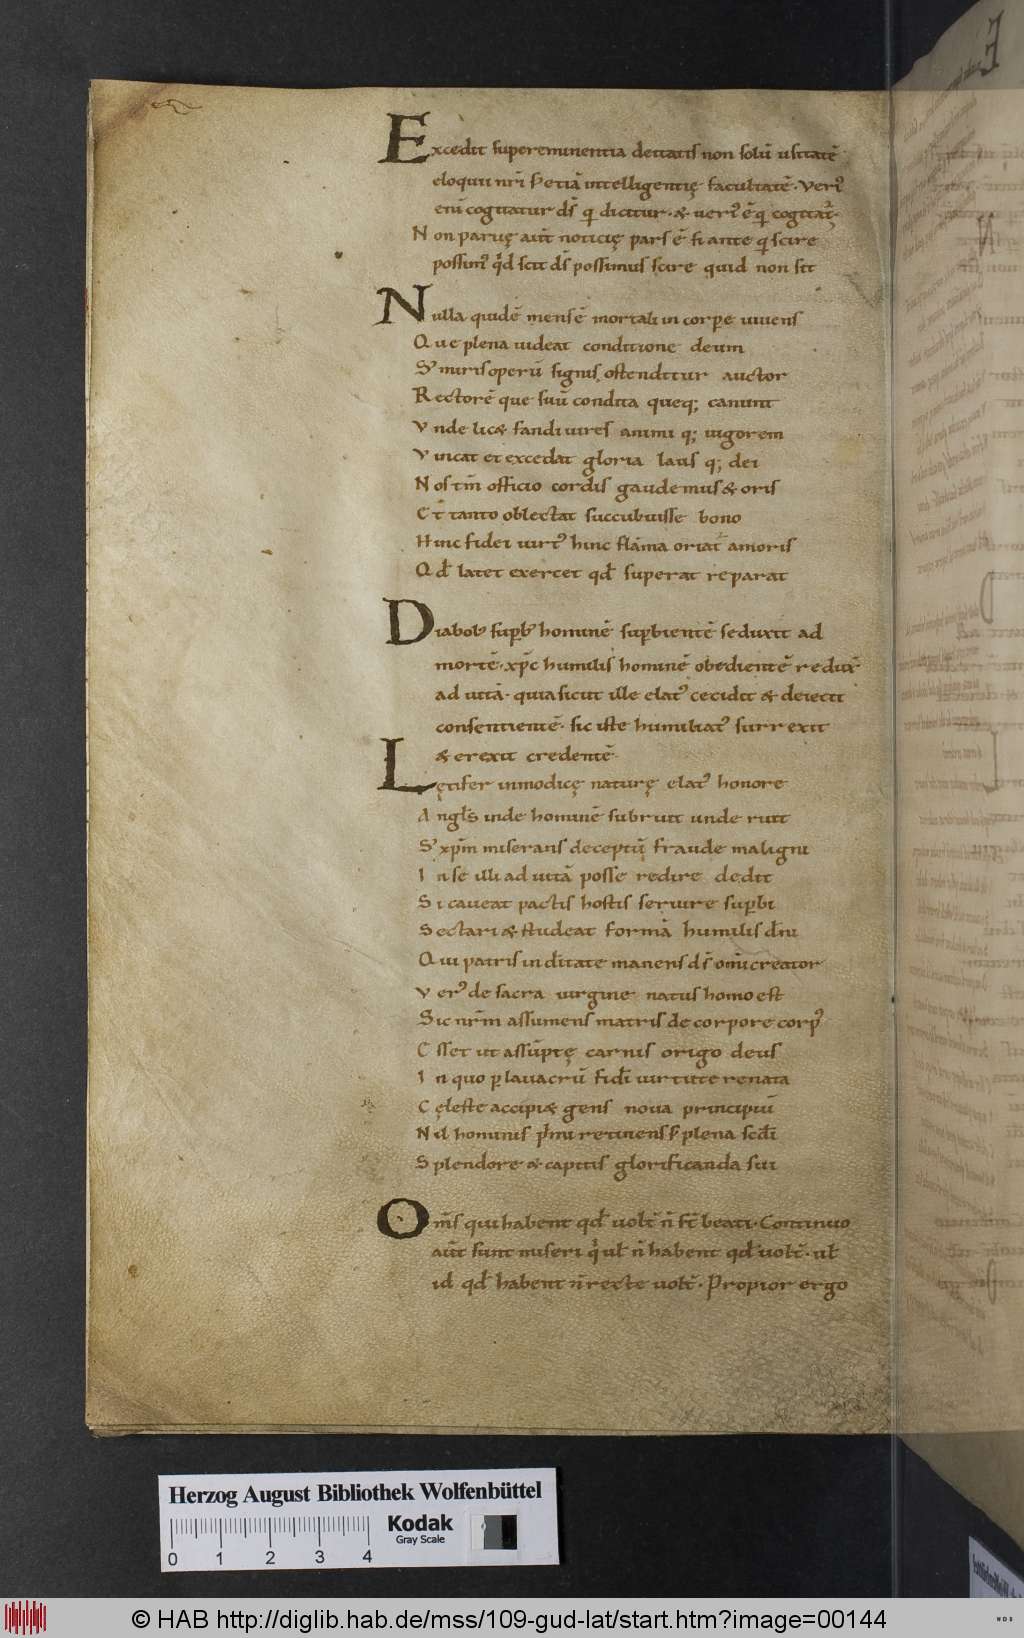 Excedit supereminentia deitatis non solū usitatē
eloquii nr̄i sꝫ etiā intelligentię facultatē. Veri᷒
enī cogitatur ds̄ qͣ dicitur. & ueri᷒ ē qͣ cogitat᷑.
Non paruę aūt noticię pars ē si ante qͣ scire
possim᷒ qͥd sit ds̄ possimus scire quid non sit
Nulla quidē mens ē mortali in corpore uiuens
Que plena uideat conditione deum
Sꝫ miris operū signis ostenditur auctor
Rectorē que suū condita queq; canunt
Vnde lic& fandi uires animi q; uigorem
Vincat et excedat gloria laus q; dei
Nos tm̄ officio cordis gaudemus & oris
Et tanto oblectat succubuisse bono
Hinc fidei uirt᷒ hinc flāma oriat᷑ amoris
Qd̄ latet exercet qd̄ superat reparat
Diabol᷒ supb᷒ hominē supbientē seduxit ad
mortē. xp̄c humilis hominē obedientē redux̄
ad uitā. quia sicut ille elat᷒ cecidit & deiecit
consentientē. sic iste humiliat᷒ surrexit
& erexit credentē
Lętifer inmodicę naturę elat᷒ honore
Angl̄s inde hominē subruit unde ruit
Sꝫ xp̄m miserans deceptū fraude maligni
In se illi ad uitā posse redire dedit
Si caueat pactis hostis seruire supbi
Sectari & studeat formā humilis dn̄i
Qui patris in dītate manens ds̄ om̄ī creator
Ver᷒ de sacra uirgine natus homo est
Sic nr̄m assumens matris de corpore corp᷒
Esset ut assūptę carnis origo deus
In quo p lauacrū fidī uirtute renata
Cęleste accipi& gens noua principiū
Nil hominis pͥmi retinens sꝫ plena scd̄i
Splendore & capitis glorificanda sui
Om̄s qui habent qd̄ uolt̄ n̄ st̄ beati. Continuo
aūt sunt miseri qͥ ul̄ n̄ habent qd̄ uolt̄. ul̄
id qd̄ habent n̄ recte uolt̄. Propior ergo
Herzog August Bibliothek Wolfenbüttel
Kodak
Gray Scale
0 1 2 3 4
© HAB http://diglib.hab.de/mss/109-gud-lat/start.htm?image=00144
WDB